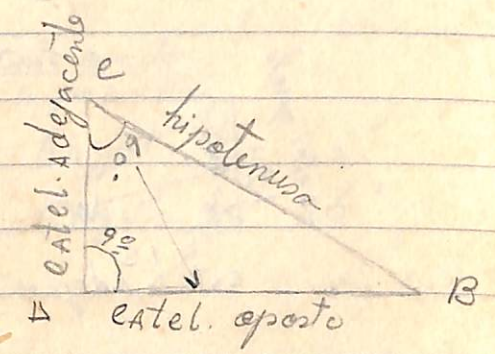 C
Catel. Adejacente
hipotenusa
60°
90
B
Catel. oposto